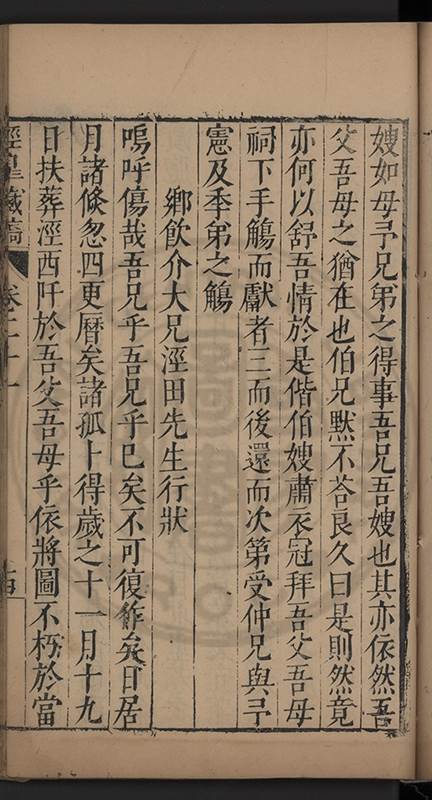 嫂如母予兄弟之得事吾兄吾嫂也其亦依然吾
父吾母之猶在也伯兄黙不荅良久曰是則然竟
亦何以舒吾情於是偕伯嫂肅衣冠拜吾父吾母
祠下手觴而獻者三而後還而次第受仲兄與予
憲及季弟之觴
鄉飲介大兄涇田先生行狀
嗚呼傷哉吾兄乎吾兄乎已矣不可復作矣日居
月諸倐忽四更曆矣諸孤卜得歲之十一月十九
日扶葬涇西阡於吾父吾母乎依將圖不朽於當
涇臯藏稿
卷二十一